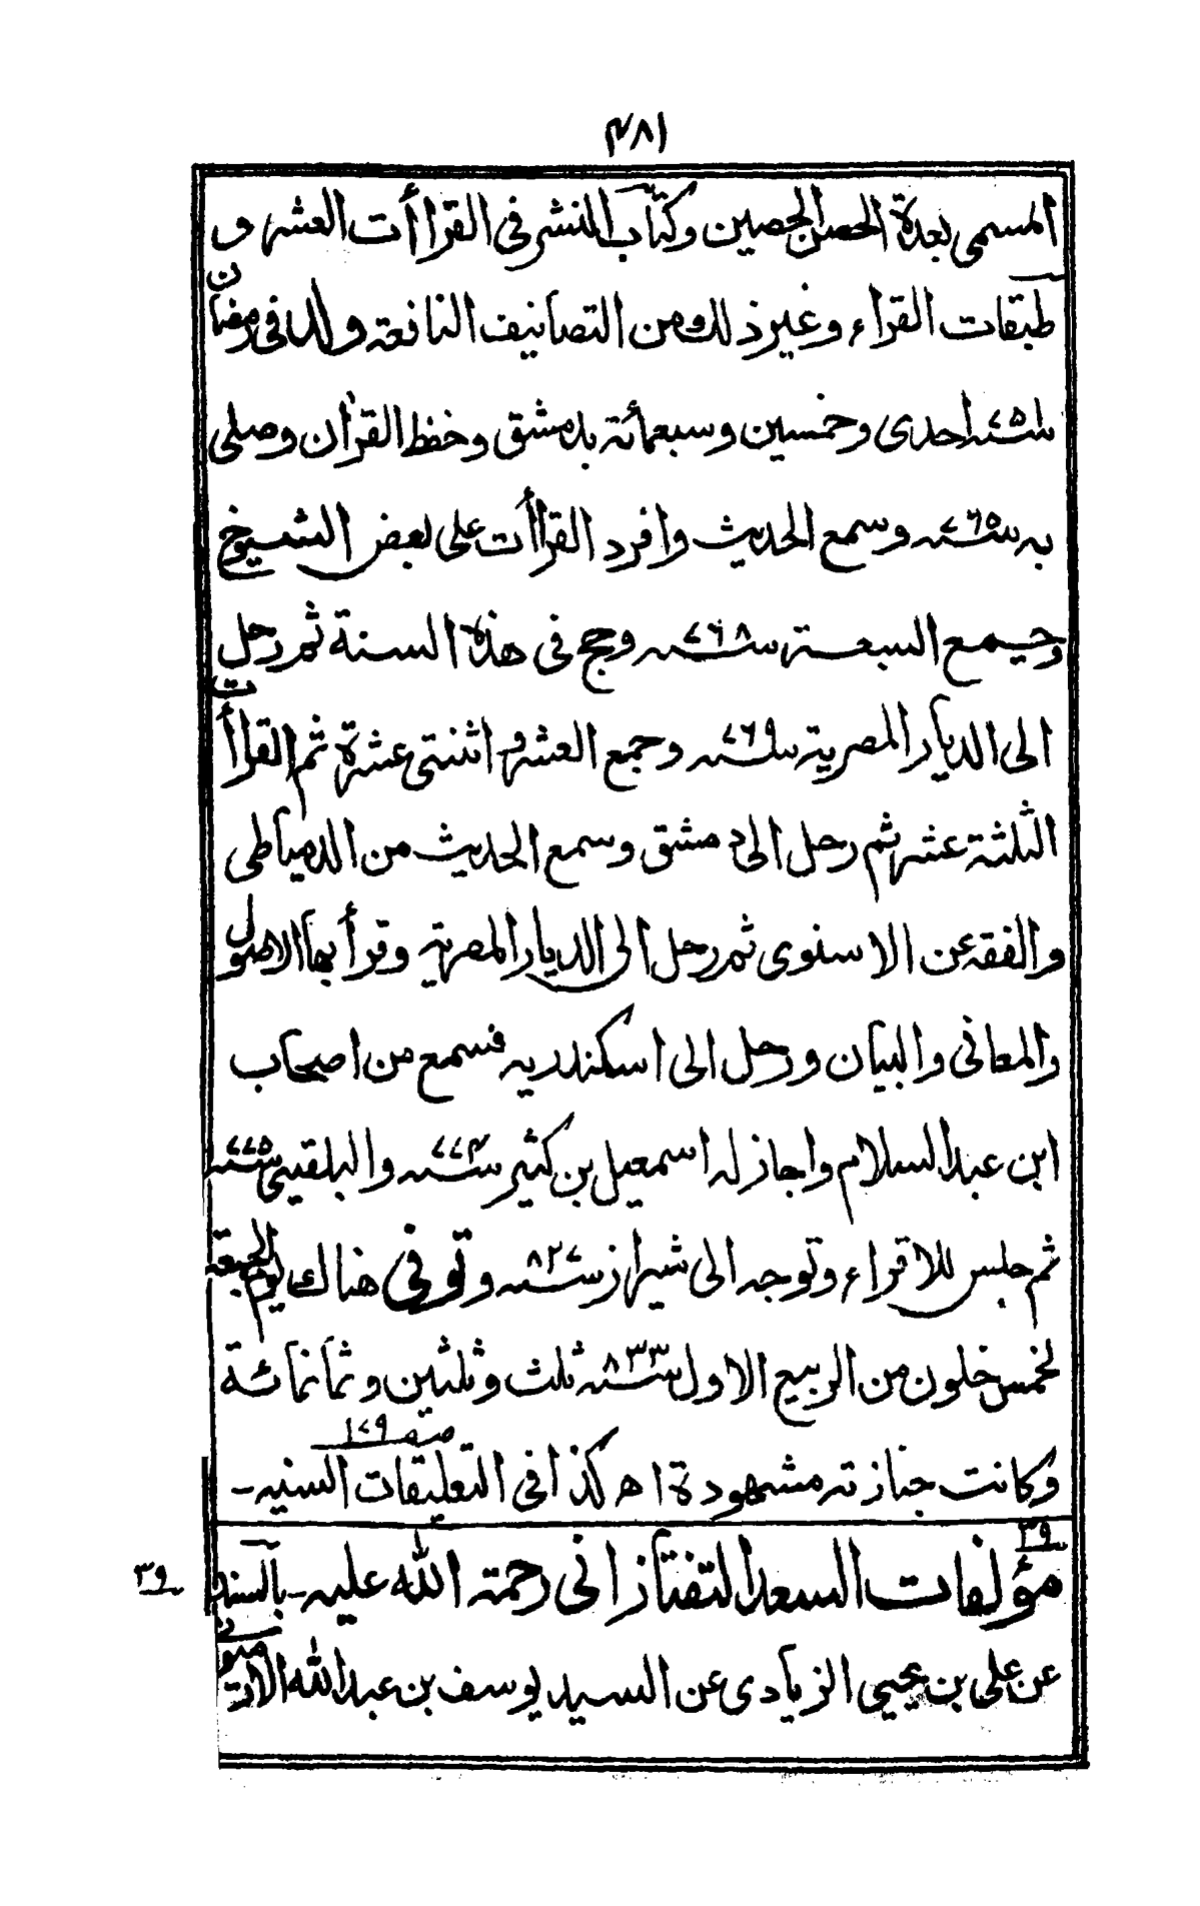 ۴۸۱
المسمى بعدة الحصن الحصين وكتاب النشر فى القراأت العشر و
طبقات القراء وغير ذلك ومن التصانيف النافعة ولد فى رمضان
سنة ۷۵۱ احدى وخمسين وسبعمائة بدمشق وحفظ القرأن وصلى
به سنة ۷۶۵ وسمع الحديث وافرد القراأت على بعض الشيوخ
وجمع السبعة سنة ۷۶۸ وحج فى هذه السنة ثم رحل
الى الديار المصرية سنة ۷۶۹ وجمع العشر و اثنتى عشرة ثم القراأت
الثلثة عشر ثم رحل الى دمشق وسمع الحديث من الدمياطى
والفقه عن الاسنوى ثم رحل الى الديار المصرية وقرأ بها الاصول
والمعانى والبيان ورحل الى اسكندريه فسمع من اصحاب
ابن عبد السلام واجاز له اسمعيل بن كثير سنة ۷۷۴ والبلقينى سنة ۷۷۵
ثم جلس للاقراء وتوجه الى شيراز سنة ۸۲۷ وتوفى هناك يوم الجمعة
لخمس خلون من الربيع الاول سنة ۸۳۳ ثلث وثلثين وثمانمائة
وكانت جنازته مشهودة اه كذا فى التعليقات السنيه ـ صفه ۱۷۹
۳۹ مؤلفات السعد التفتازانى رحمة الله عليه ـ بالسند ۳۹
عن على بن يحيى الزيادى عن السيد يوسف بن عبد الله الارميونى